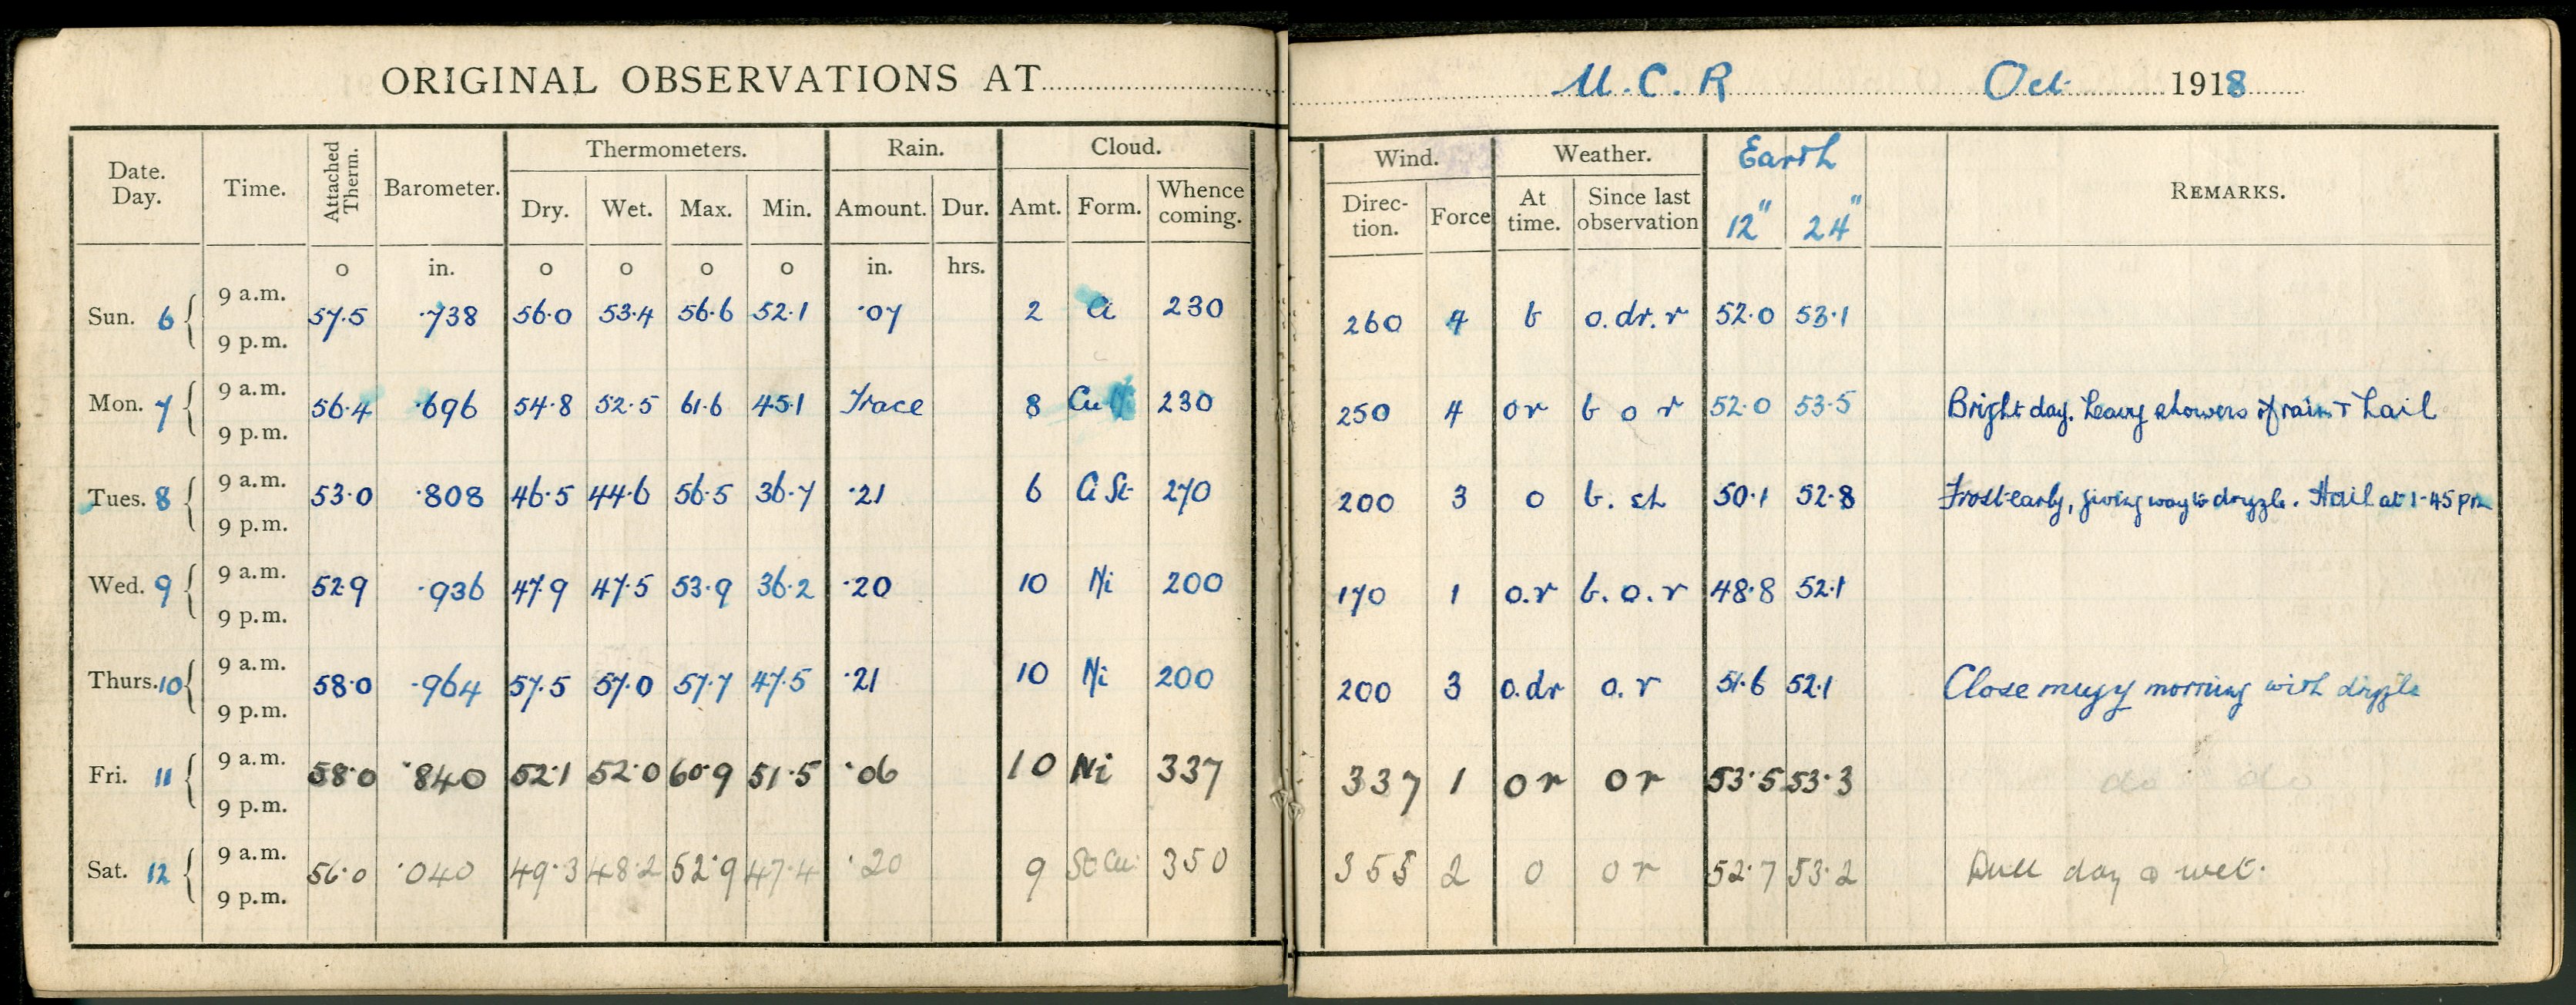 ORIGINAL OBSERVATIONS AT U.C.R Oct 1918
Date. Day. Time. Attached Therm. Barometer. Thermometers. Rain. Cloud. Wind. Weather. Earth REMARKS.
Dry. Wet. Max. Min. Amount. Dur. Amt. Form. Whence coming. Direc-tion. Force At time. Since last observation 12" 24"
o in. o o o o in. hrs.
Sun. 6 9 a.m. 57.5 .738 56.0 53.4 56.6 52.1 .07 2 Ci 230 260 4 b o.dr.r 52.0 53.1
9 p.m.
Mon. 7 9 a.m. 56.4 .696 54.8 52.5 61.6 45.1 Trace 8 Cu 230 250 4 or b o r 52.0 53.5 Bright day. heavy showers of rain + hail
9 p.m.
Tues. 8 9 a.m. 53.0 .808 46.5 44.6 56.5 36.7 .21 6 Ci St 270 200 3 o b. sh 50.1 52.8 Frost early, giving way to dryzzle. Hail at 1-45 pm
9 p.m.
Wed. 9 9 a.m. 52.9 .936 47.9 47.5 53.9 36.2 .20 10 Ni 200 170 1 o.r b.o.r 48.8 52.1
9 p.m.
Thurs. 10 9 a.m. 58.0 .964 57.5 57.0 57.7 47.5 .21 10 Ni 200 200 3 o.dr o.r 51.6 52.1 Close mugy morning with drizzle
9 p.m.
Fri. 11 9 a.m. 58.0 .840 52.1 52.0 60.9 51.5 .06 10 Ni 337 337 1 or or 53.5 53.3 do do
9 p.m.
Sat. 12 9 a.m. 56.0 .040 49.3 48.2 52.9 47.4 .20 9 St Cu. 350 355 2 o or 52.7 53.2 Dull day & wet.
9 p.m.